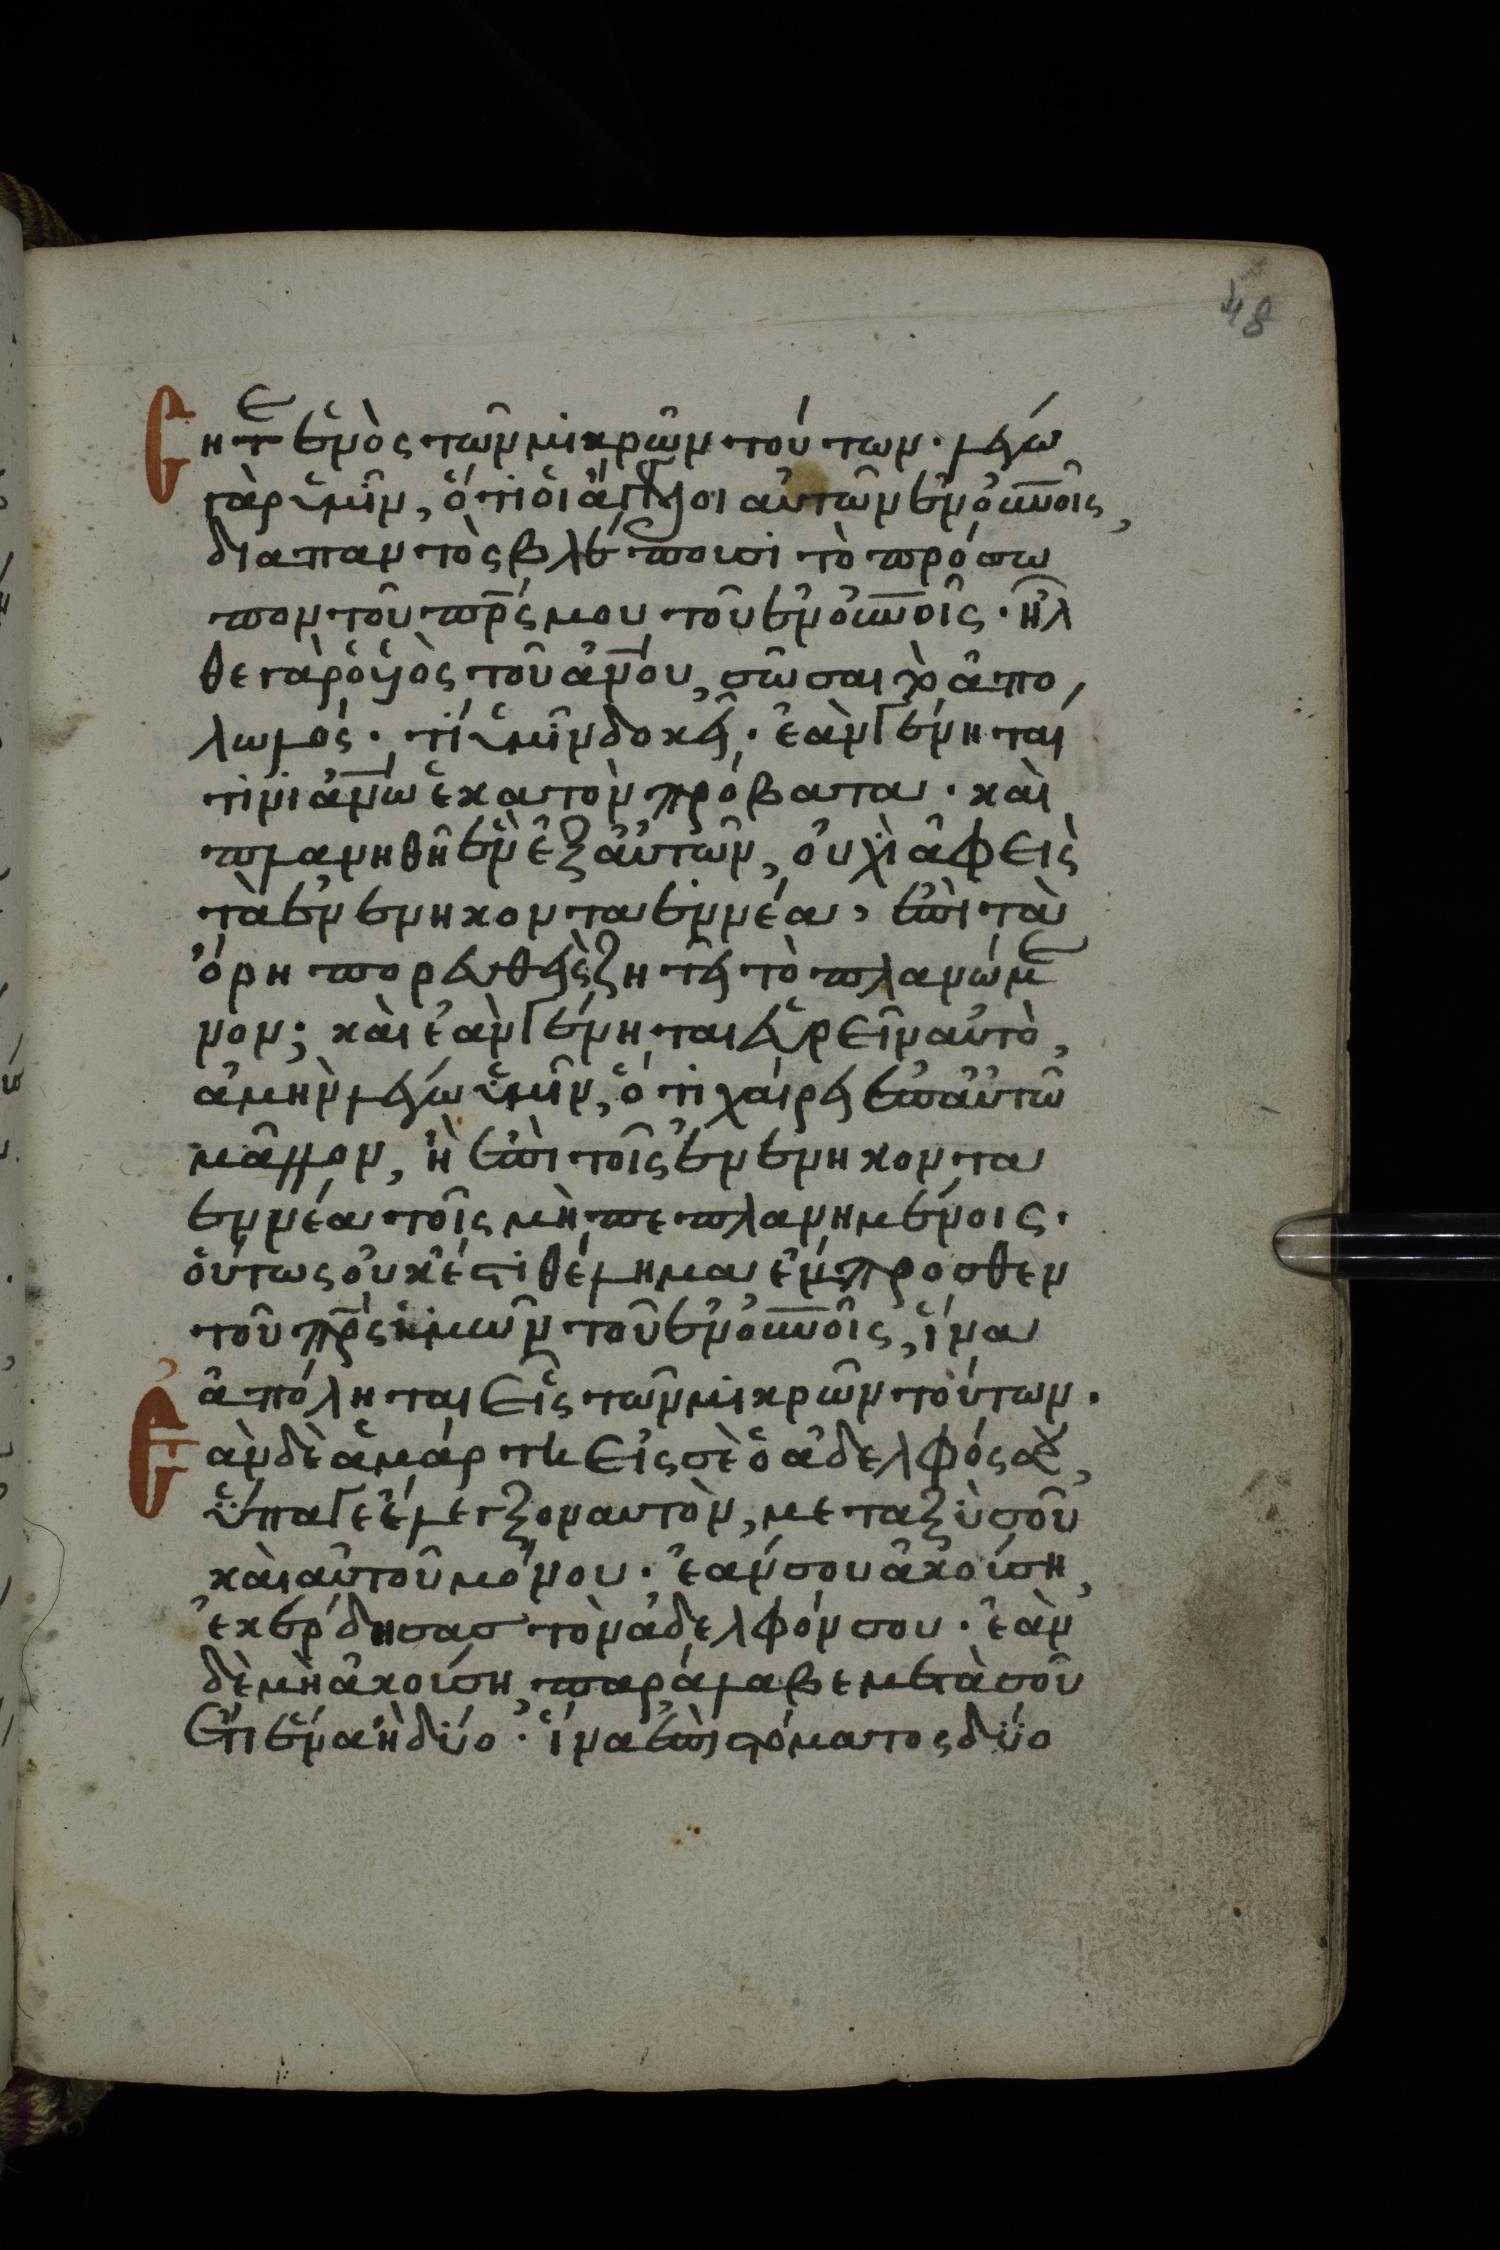 48
ητε ἑνὸς τῶν μικρῶν τούτων· λέγω
γὰρ ὑμῖν, ὅτι ὁι ἄγγελοι αὐτῶν ἐν οὐνοῖς,
διαπαντὸς βλέπουσι τὸ πρόσω
πον τοῦ πρς μου τοῦ ἐν οὐνοῖς· ἦλ
θε γὰρ ὁ υἱὸς τοῦ ἀνου, σῶσαι τὸ ἀπο
λωλός· τί ὑμῖν δοκεῖ· ἐὰν γένηται
τινὶ ἀνω ἑκατὸν πρόβατα· καὶ
πλανηθῆ ἓν ἐξ αὐτῶν, οὐχὶ ἀφεὶς
τὰ ἐνενηκονταεννέα, ἐπὶ τὰ
ὄρη πορευθεὶς ζητεῖ τὸ πλανώμε
νον; καὶ ἐὰν γένηται εὑρεῖν αὐτὸ,
ἀμὴν λέγω ὑμῖν, ὅτι χαίρει ἐπ αὐτῶ
μᾶλλον, ἢ ἐπὶ τοῖς ἐνενηκοντα
εννέα τοῖς μὴ πεπλανημένοις·
ὁύτως οὐκ ἔστι θέλημα ἔμπροσθεν
τοῦ πρς ἡμῶν τοῦ ἐν οὐνοῖς, ἵνα
ἀπόληται εἷς τῶν μικρῶν τούτων.
Ἐὰν δὲ ἁμάρτη εἰς σὲ ὁ ἀδελφός σου,
ὕπαγε ἔλεγξον αυτὸν, μεταξὺ σοῦ
καὶ αὐτοῦ μόνου· ἐάν σου ἀκούση,
ἐκέρδησας τὸν ἀδελφόν σου· ἐὰν
δὲ μὴ ἀκούση, παράλαβε μετὰ σοῦ
ἔτι ἕνα ἢ δύο· ἵνα ἐπὶ στόματος δύο